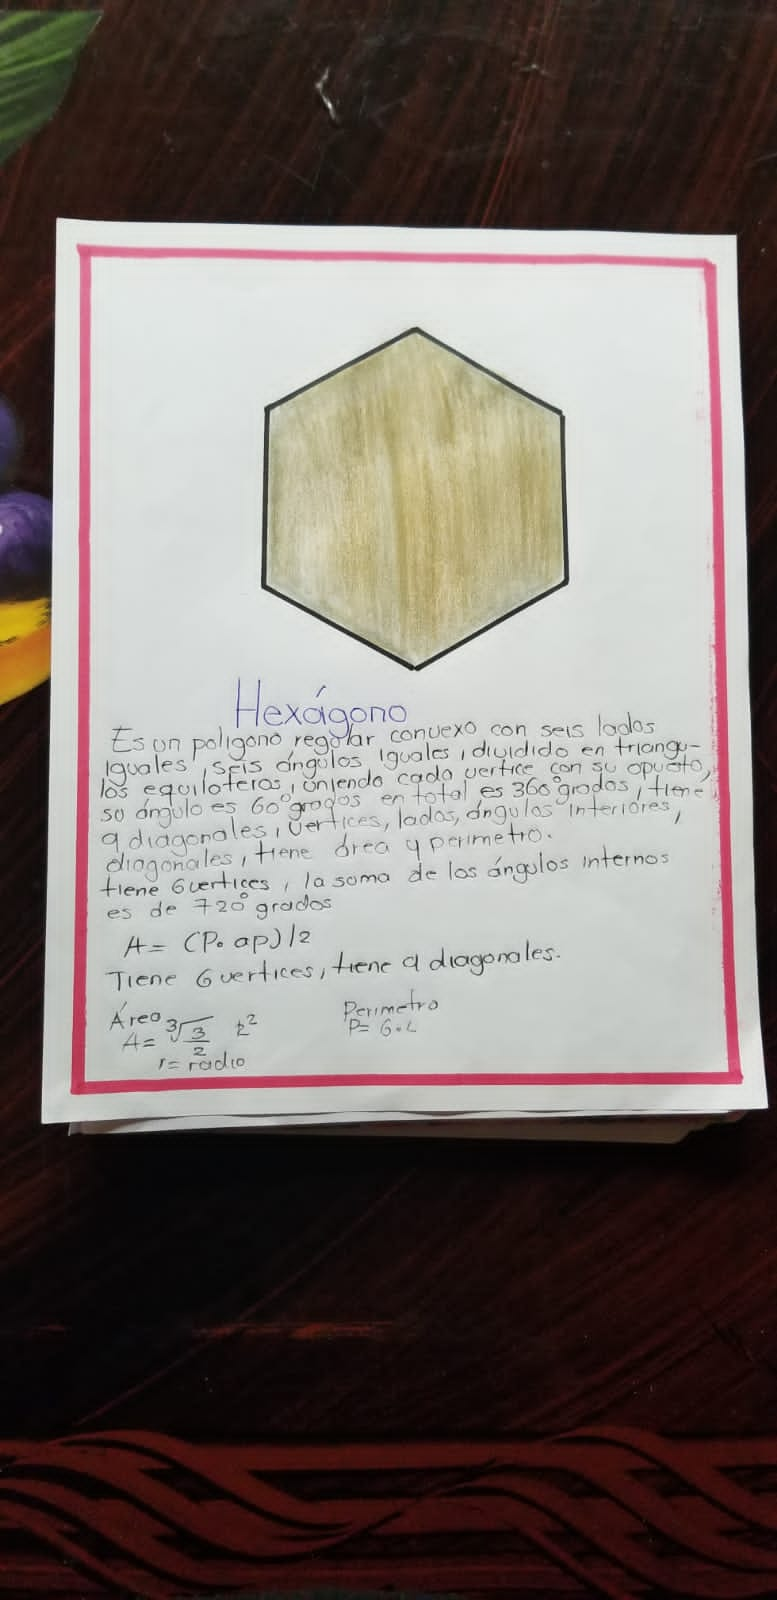 Hexágono
Es un poligono regular convexo con seis lados
iguales, seis ángulos iguales, dividido en triangu-
los equiloteros, uniendo cada vertice con su opuesto,
su ángulo es 60° grados en total es 360° grados, tiene
9 diagonales, vertices, lados, ángulos interiores,
diagonales, tiene área y perimetro.
tiene 6 vertices, la suma de los ángulos internos
es de 720° grados
A= (P. ap)/2
Tiene 6 vertices, tiene 9 diagonales.
Área
A= 3√3/2 r²
r= radio
Perimetro
P= 6.L